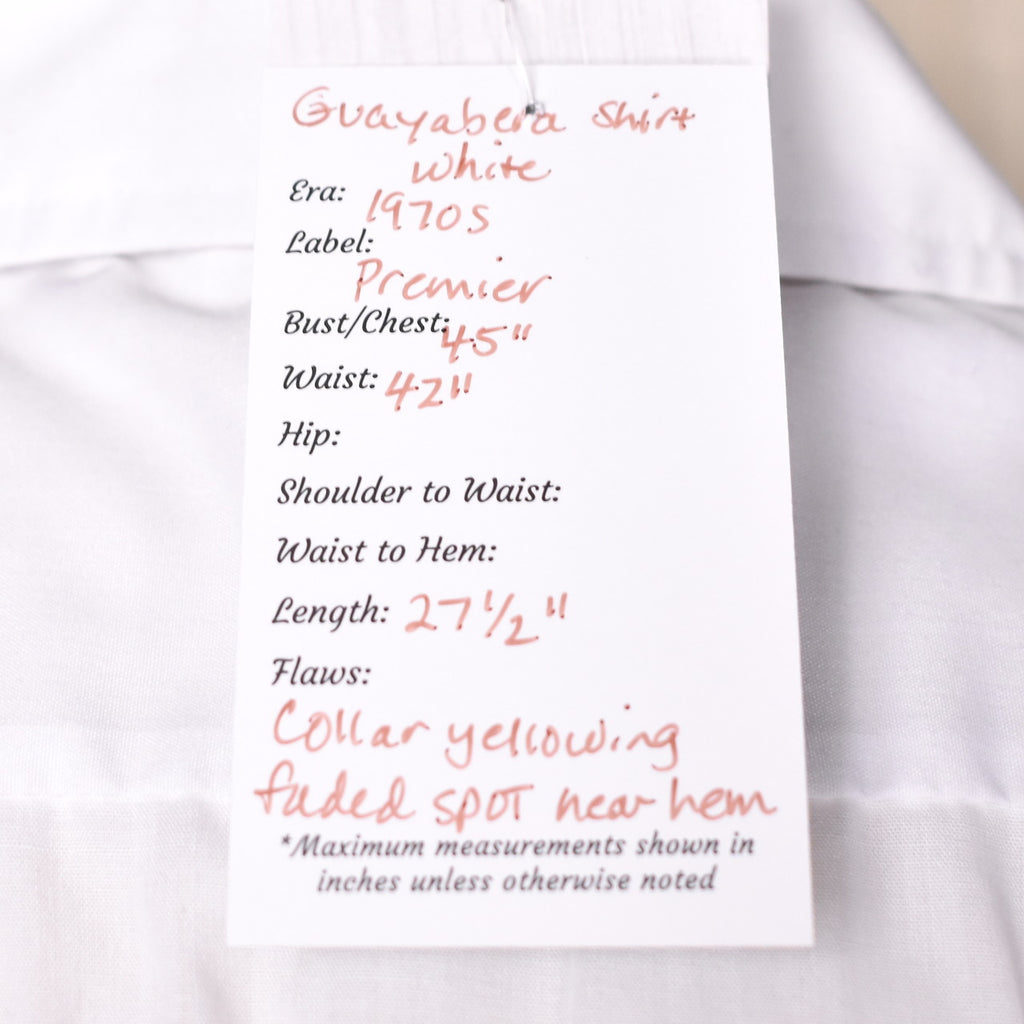 Guayabera Shirt
white
Era: 1970s
Label:
Premier
Bust/Chest: 45"
Waist: 42"
Hip:
Shoulder to Waist:
Waist to Hem:
Length: 27 1/2"
Flaws:
Collar yellowing
faded spot near hem
*Maximum measurements shown in
inches unless otherwise noted